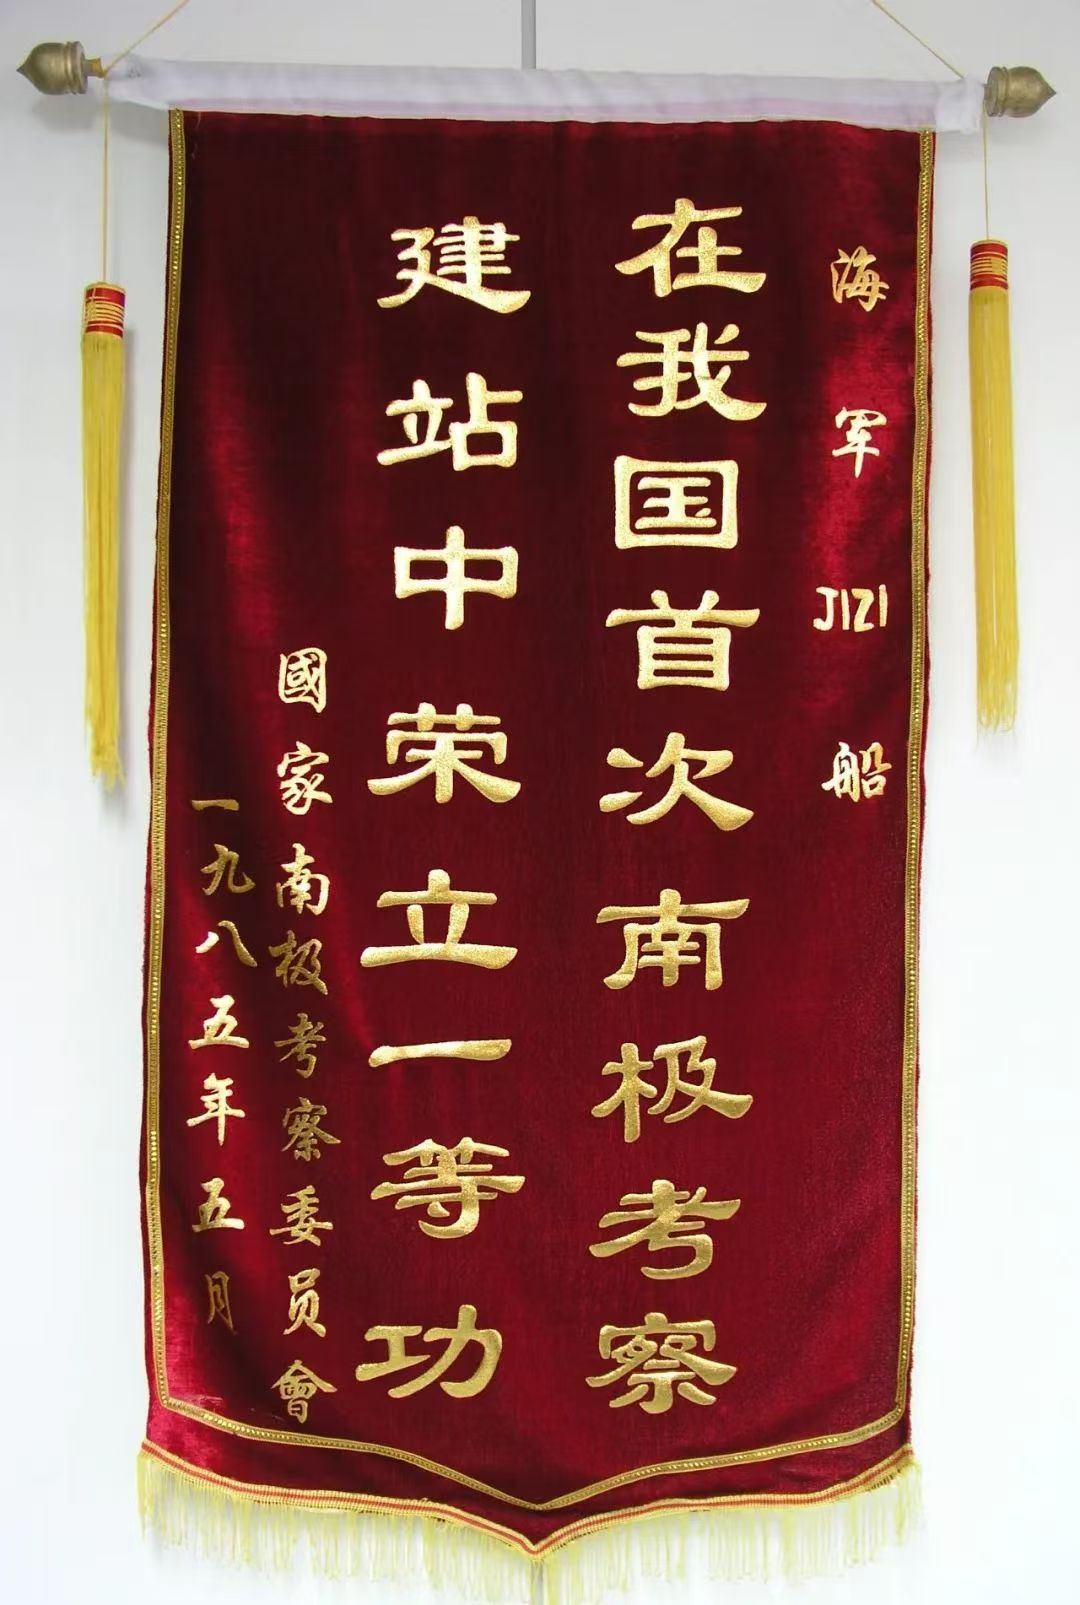 海军J121船
在我国首次南极考察
建站中荣立一等功
國家南极考察委员會
一九八五年五月